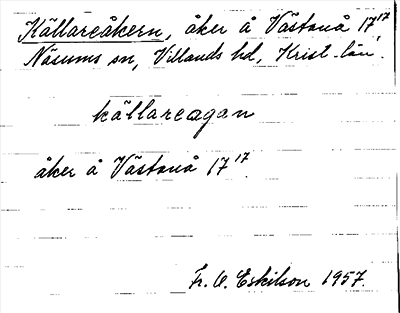 Källareåkern, åker å Västanå 17¹⁷,
Näsums sn, Villands hd, Krist. län.
källareagan
åker å Västanå 17¹⁷.
Fr. E. Eskilson 1957.